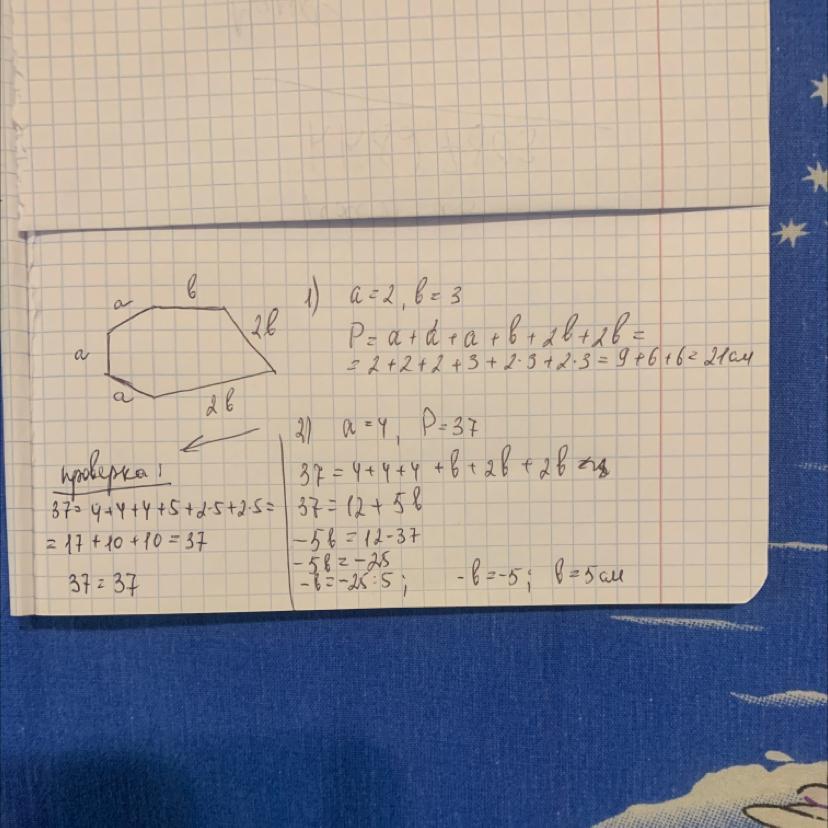 a
b
a
2b
a
2b
1) a = 2, b = 3
P = a + a + a + b + 2b + 2b =
= 2 + 2 + 2 + 3 + 2·3 + 2·3 = 9 + 6 + 6 = 21 см
2) a = 4, P = 37
37 = 4 + 4 + 4 + b + 2b + 2b
37 = 12 + 5b
-5b = 12 - 37
-5b = -25
-b = -25 : 5 ; -b = -5 ; b = 5 см
проверка!
37 = 4 + 4 + 4 + 5 + 2·5 + 2·5 =
= 17 + 10 + 10 = 37
37 = 37